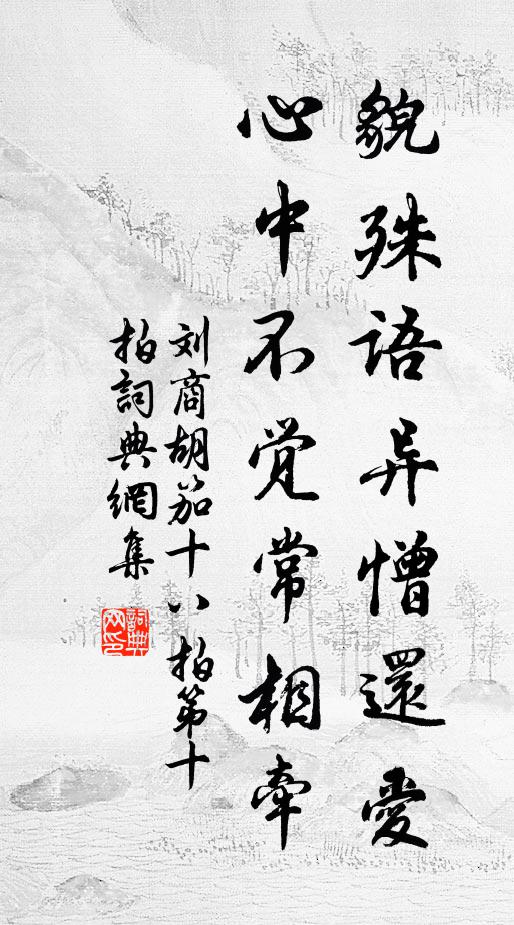 貌殊语异憎還愛
心中不觉常相牽
刘商胡笳十八拍第十
拍詞典網集
詞典网印